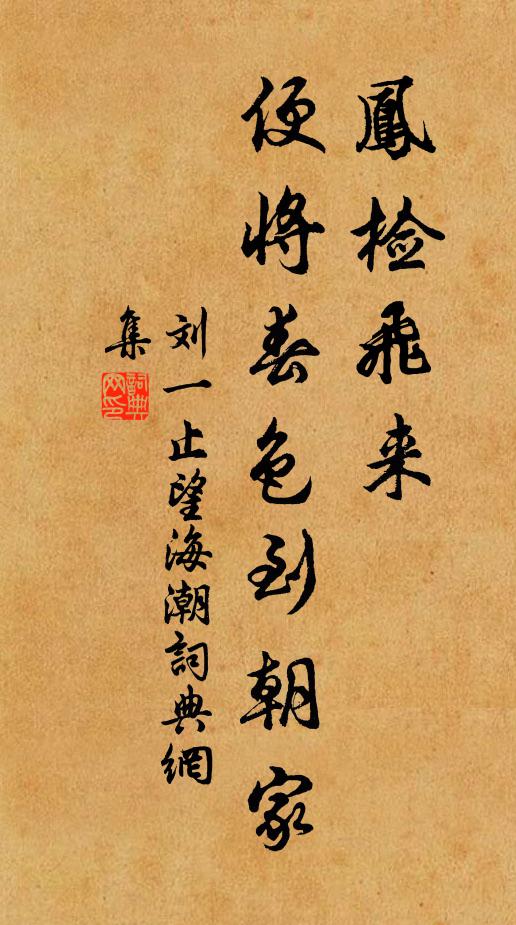 鳳检飛来
便将春色到朝家
刘一止望海潮詞典網
集
詞典
网印